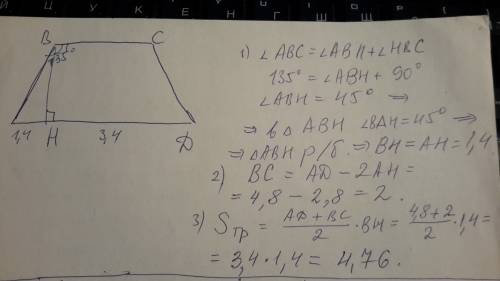 B C
135°
1,4 H 3,4 D
1) ∠ABC = ∠ABH + ∠HBC
135° = ∠ABH + 90°
∠ABH = 45° ⇒
⇒ в △ ABH ∠BAH = 45° ⇒
⇒ △ABH р/б. ⇒ BH = AH = 1,4
2) BC = AD - 2AH =
= 4,8 - 2,8 = 2.
3) Sтр = (AD + BC)/2 · BH = (4,8 + 2)/2 · 1,4 =
= 3,4 · 1,4 = 4,76.